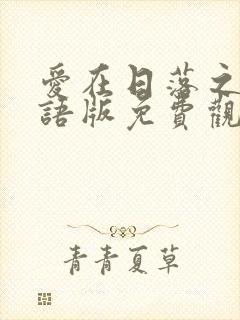 愛在日落之
語版免費觀
青青夏草